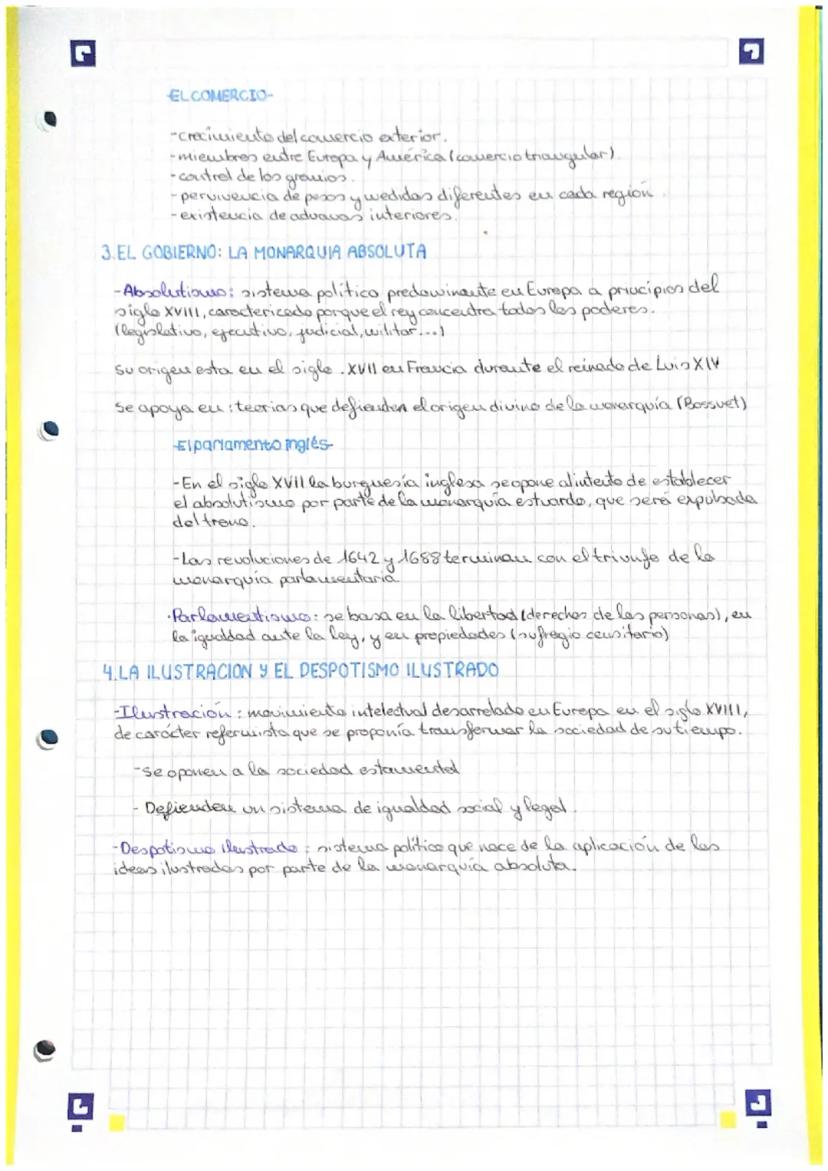 -EL COMERCIO-
-crecimiento del comercio exterior.
-miembros entre Europa y América (comercio triangular)
-control de los gremios.
-pervivencia de pesos y medidas diferentes en cada región.
-existencia de aduanas interiores.
3.EL GOBIERNO: LA MONARQUIA ABSOLUTA
-Absolutismo: sistema político predominante en Europa a principios del
siglo XVIII, caracterizado porque el rey concentra todos los poderes.
(legislativo, ejecutivo, judicial, militar...)
Su origen esta en el siglo .XVII en Francia durante el reinado de Luis XIV
Se apoya en: teorias que defienden el origen divino de la monarquía (Bossuet)
-El parlamento inglés-
-En el siglo XVII la burguesía inglesa se opone al intento de establecer
el absolutismo por parte de la monarquía estuardo, que será expulsada
del trono.
-Las revoluciones de 1642 y 1688 terminan con el triunfo de la
monarquía parlamentaria.
·Parlamentismo: se basa en la libertad (derechos de las personas), en
la igualdad ante la ley, y en propiedades (sufragio censitario)
4.LA ILUSTRACION Y EL DESPOTISMO ILUSTRADO
-Ilustración: movimiento intelectual desarrolado en Europa en el siglo XVIII,
de carácter reformista que se proponía transformar la sociedad de su tiempo.
-se oponen a la sociedad estamental
- Defienden un sistema de igualdad social y legal.
-Despotismo ilustrado: sistema político que nace de la aplicación de las
ideas ilustradas por parte de la monarquía absoluta.